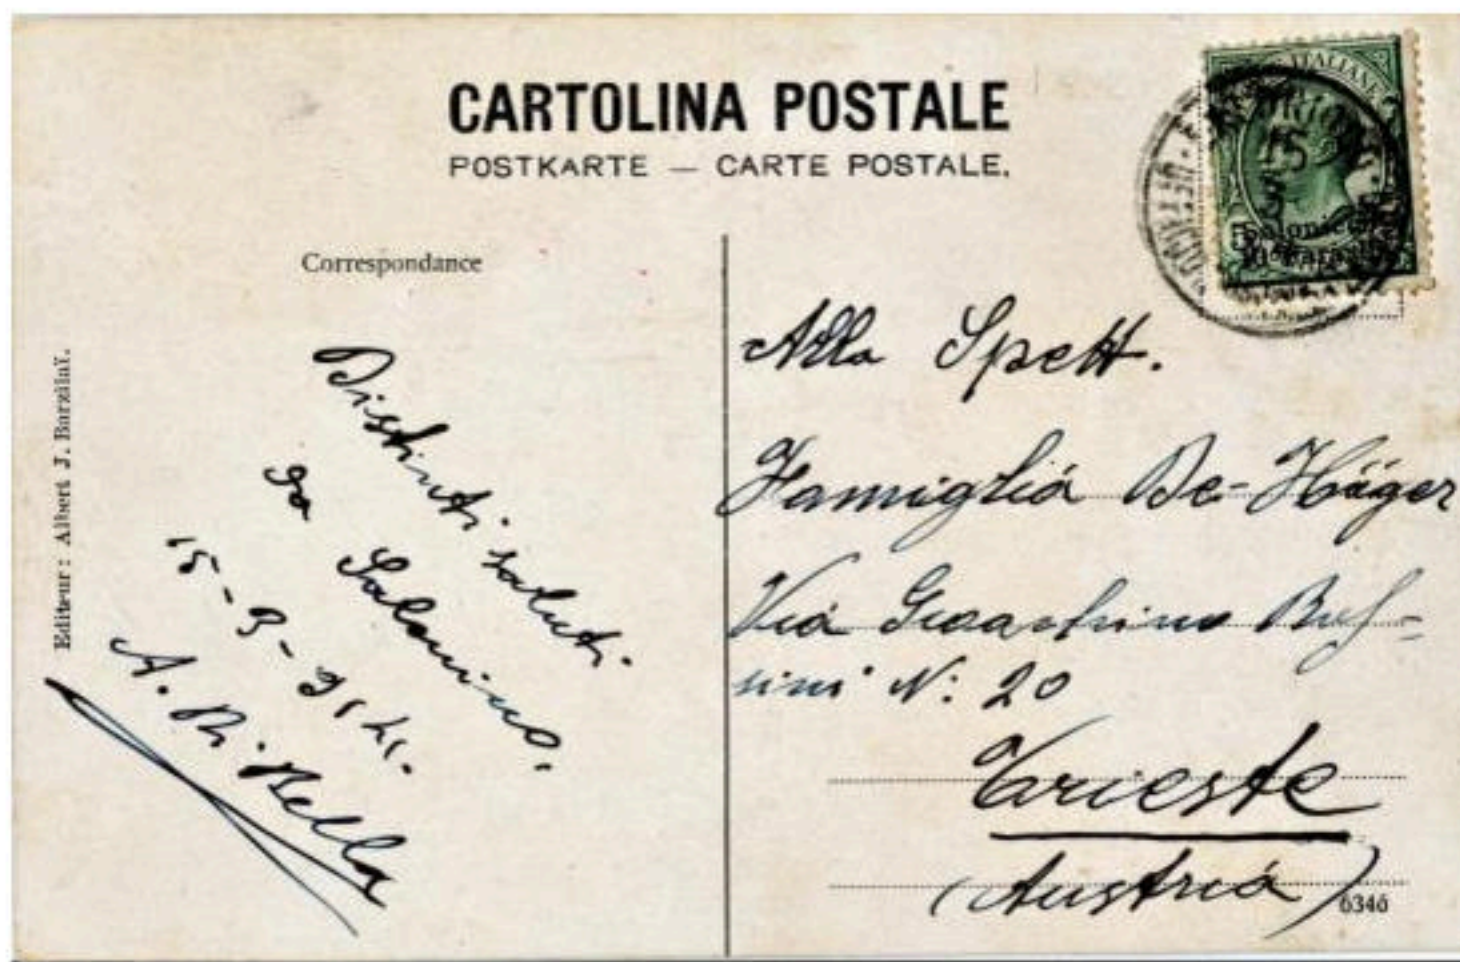 CARTOLINA POSTALE
POSTKARTE — CARTE POSTALE.
Correspondance
Editeur: Albert J. Barzilaï.
Distinti saluti
15-3-914.
A.
ITALIANE
15
3
Salonicco
Alla Spett.
Famigliá De-Häger
Via Gioachino Ros-
sini N: 20
Trieste
(Austriá)
6346